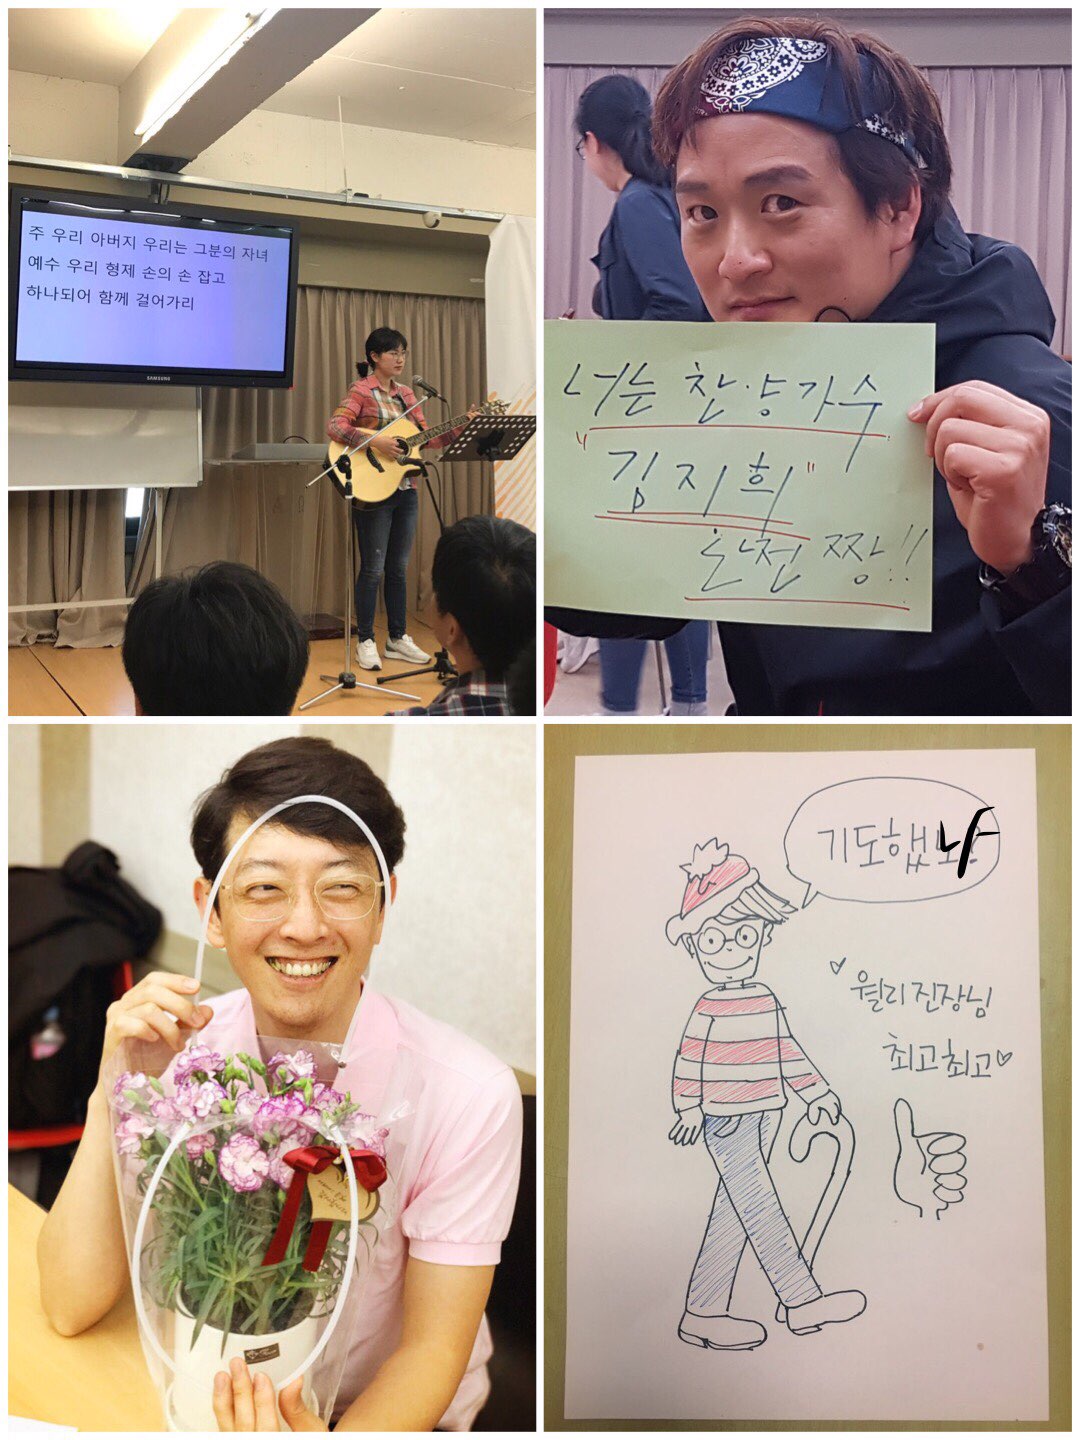 주 우리 아버지 우리는 그분의 자녀
예수 우리 형제 손의 손 잡고
하나되어 함께 걸어가리
SAMSUNG
너는 찬양가수
"김지희"
완전 짱!!
기도했냐
월리진장님
최고최고